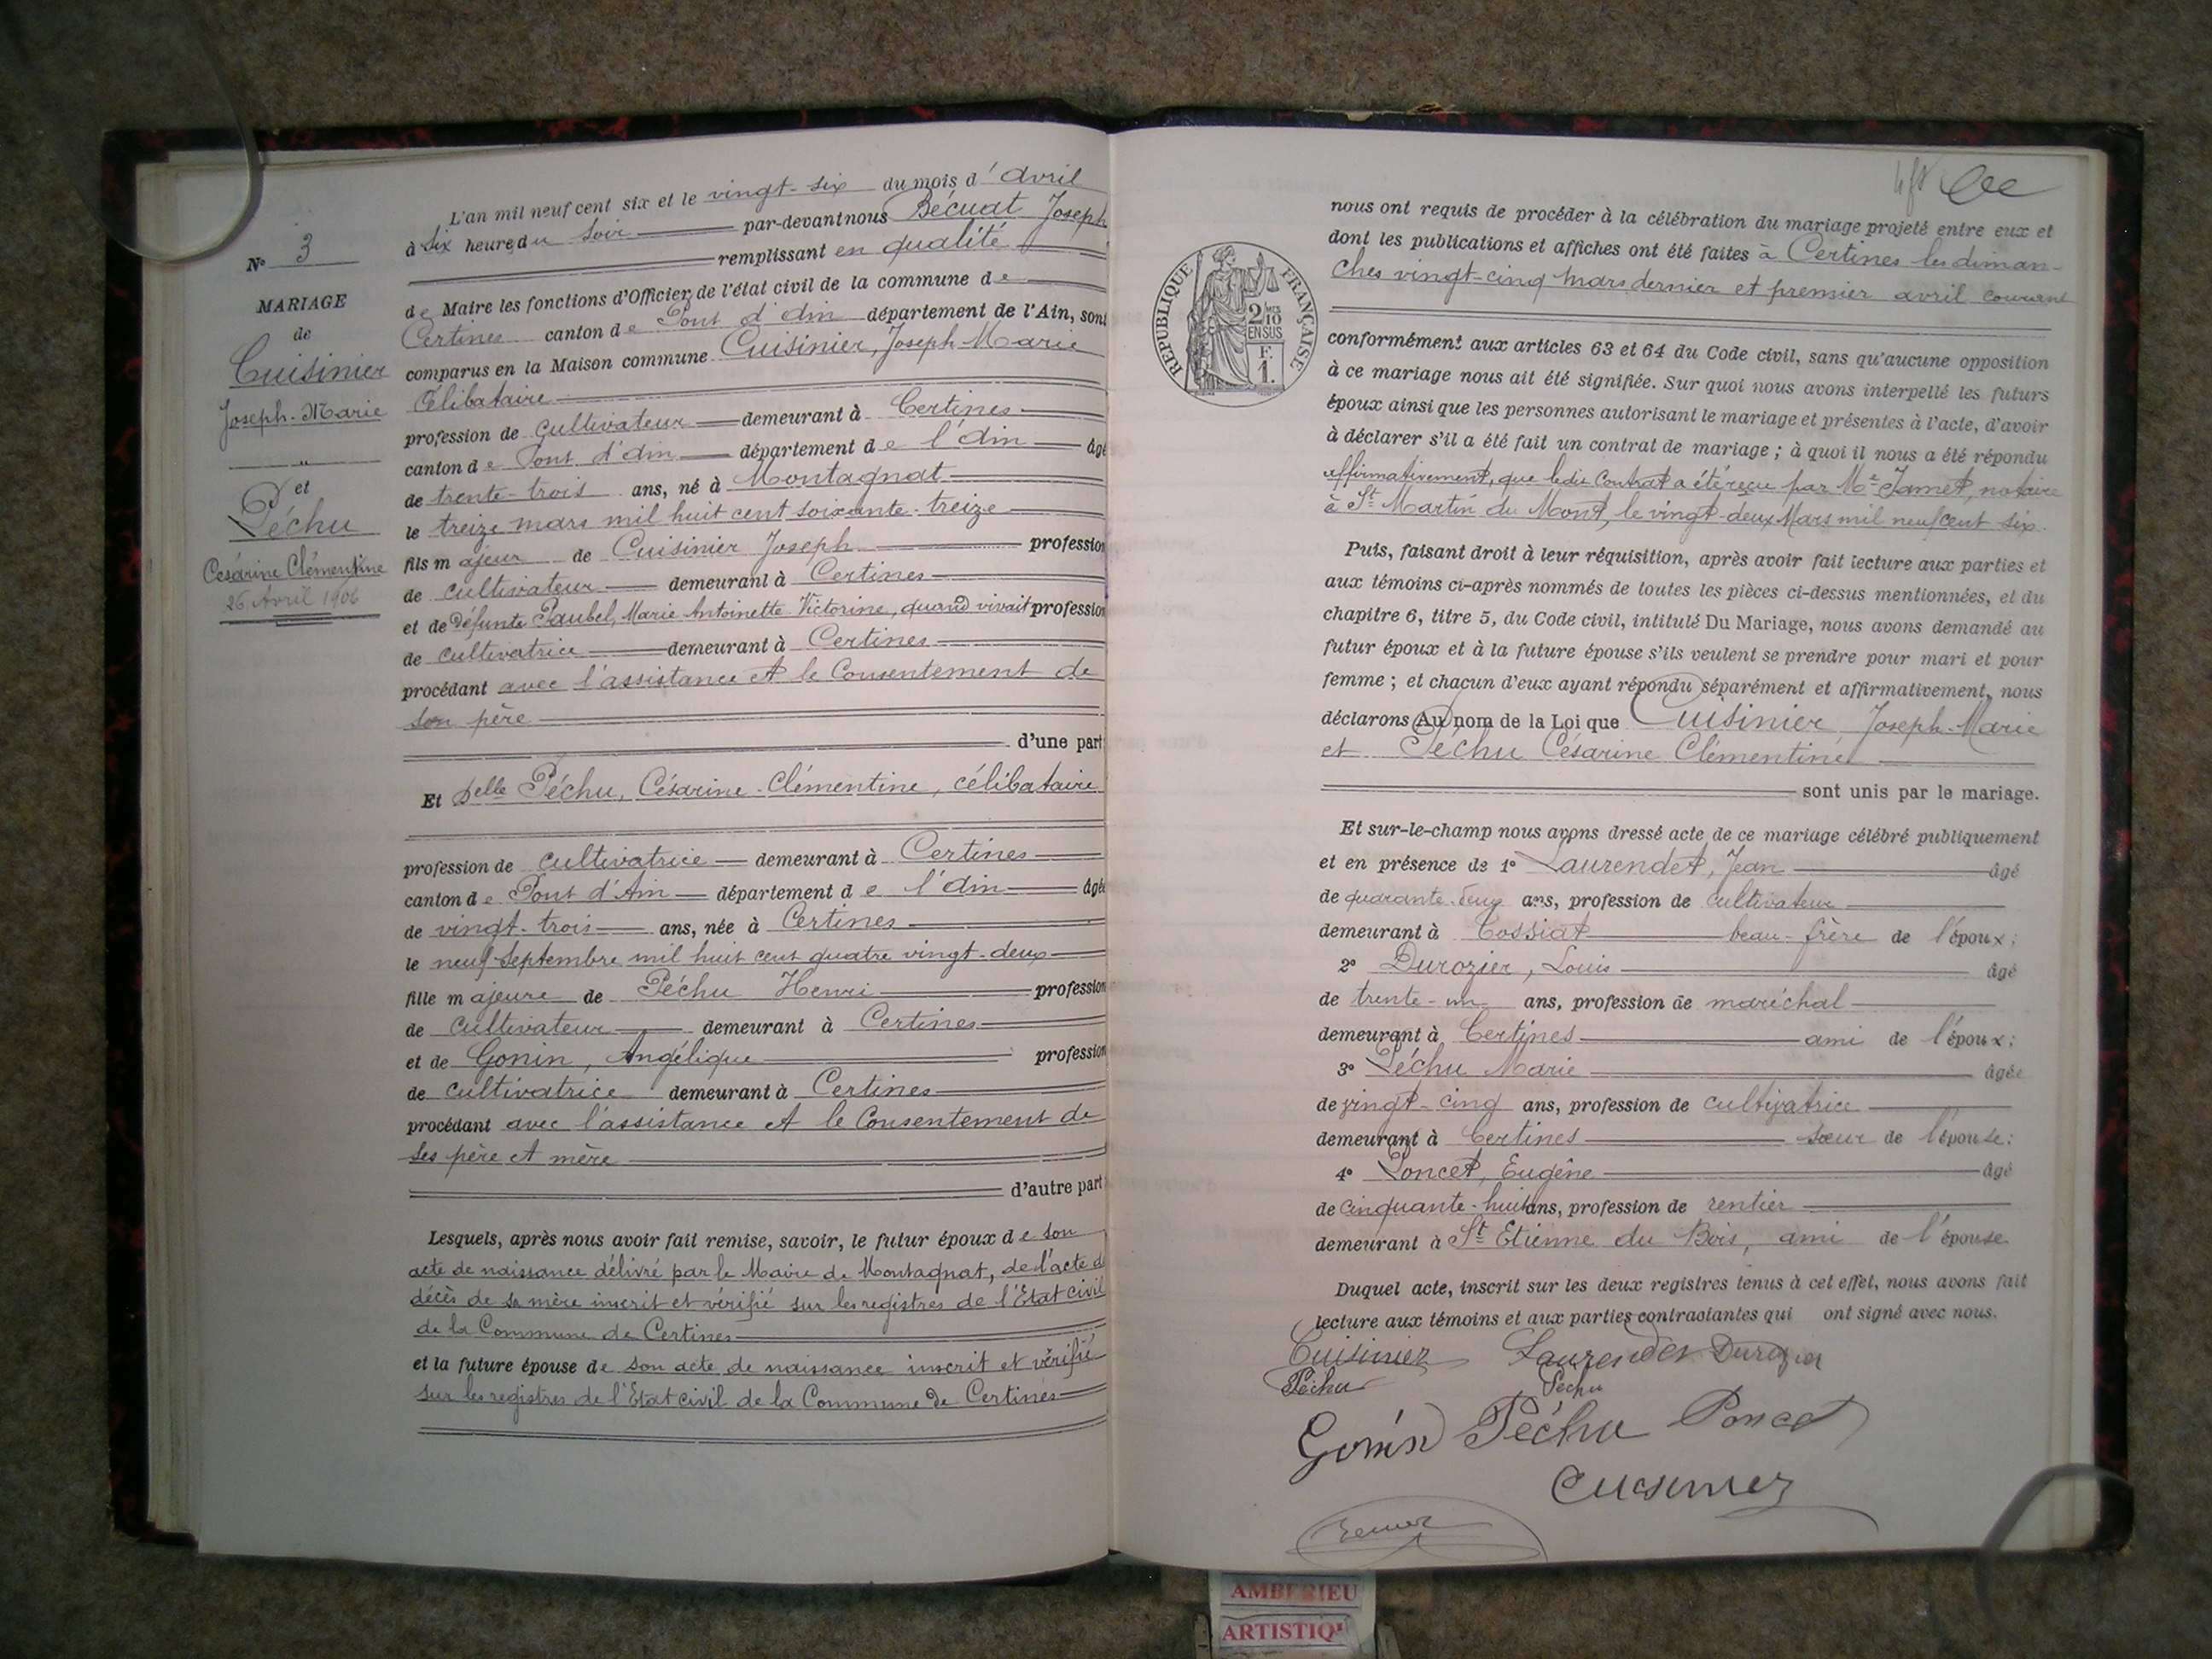 N° 3
MARIAGE
de
Cuisinier
Joseph-Marie
et
Péchu
Césarine Clémentine
26 Avril 1906
L'an mil neuf cent six et le vingt-six du mois d'Avril
à six heures du soir par-devant nous Bécuat Joseph
remplissant en qualité
de Maire les fonctions d'Officier de l'état civil de la commune de
Certines canton de Pont d'Ain département de l'Ain, sont
comparus en la Maison commune Cuisinier, Joseph-Marie
Célibataire
profession de cultivateur demeurant à Certines
canton de Pont d'Ain département de l'Ain âgé
de trente-trois ans, né à Montagnat
le treize mars mil huit cent soixante-treize
fils majeur de Cuisinier Joseph profession
de cultivateur demeurant à Certines
et de Défunte Paubel, Marie Antoinette Victorine, quand vivait profession
de cultivatrice demeurant à Certines
procédant avec l'assistance et le Consentement de
son père
d'une part
Et Delle Péchu, Césarine-Clémentine, célibataire
profession de cultivatrice demeurant à Certines
canton de Pont d'Ain département de l'Ain âgée
de vingt-trois ans, née à Certines
le neuf septembre mil huit cent quatre vingt-deux
fille majeure de Péchu Henri profession
de cultivateur demeurant à Certines
et de Gonin, Angélique profession
de cultivatrice demeurant à Certines
procédant avec l'assistance et le Consentement de
ses père et mère
d'autre part
Lesquels, après nous avoir fait remise, savoir, le futur époux de son
acte de naissance délivré par le Maire de Montagnat, de l'acte de
décès de sa mère inscrit et vérifié sur les registres de l'Etat civil
de la Commune de Certines
et la future épouse de son acte de naissance inscrit et vérifié
sur les registres de l'Etat civil de la Commune de Certines
REPUBLIQUE FRANÇAISE
2/10 EN SUS
F. 1.
nous ont requis de procéder à la célébration du mariage projeté entre eux et
dont les publications et affiches ont été faites à Certines les diman-
ches vingt-cinq mars dernier et premier avril courant
conformément aux articles 63 et 64 du Code civil, sans qu'aucune opposition
à ce mariage nous ait été signifiée. Sur quoi nous avons interpellé les futurs
époux ainsi que les personnes autorisant le mariage et présentes à l'acte, d'avoir
à déclarer s'il a été fait un contrat de mariage ; à quoi il nous a été répondu
affirmativement, que ledit Contrat a été reçu par Me Jamet, notaire
à St Martin du Mont, le vingt-deux Mars mil neuf cent six.
Puis, faisant droit à leur réquisition, après avoir fait lecture aux parties et
aux témoins ci-après nommés de toutes les pièces ci-dessus mentionnées, et du
chapitre 6, titre 5, du Code civil, intitulé Du Mariage, nous avons demandé au
futur époux et à la future épouse s'ils veulent se prendre pour mari et pour
femme ; et chacun d'eux ayant répondu séparément et affirmativement, nous
déclarons Au nom de la Loi que Cuisinier Joseph-Marie
et Péchu Césarine Clémentine
sont unis par le mariage.
Et sur-le-champ nous avons dressé acte de ce mariage célébré publiquement
et en présence de 1° Laurendet, Jean âgé
de quarante-deux ans, profession de cultivateur
demeurant à Tossiat beau-frère de l'époux;
2° Durozier, Louis âgé
de trente-un ans, profession de maréchal
demeurant à Certines ami de l'époux;
3° Péchu Marie âgée
de vingt-cinq ans, profession de cultivatrice
demeurant à Certines sœur de l'épouse;
4° Poncet, Eugène âgé
de cinquante-huit ans, profession de rentier
demeurant à St Etienne du Bois, ami de l'épouse
Duquel acte, inscrit sur les deux registres tenus à cet effet, nous avons fait
lecture aux témoins et aux parties contractantes qui ont signé avec nous.
Cuisinier Laurendet Durozier
Péchu Péchu
Gonin Péchu Poncet
Cuisinier
AMBERIEU
ARTISTIQ